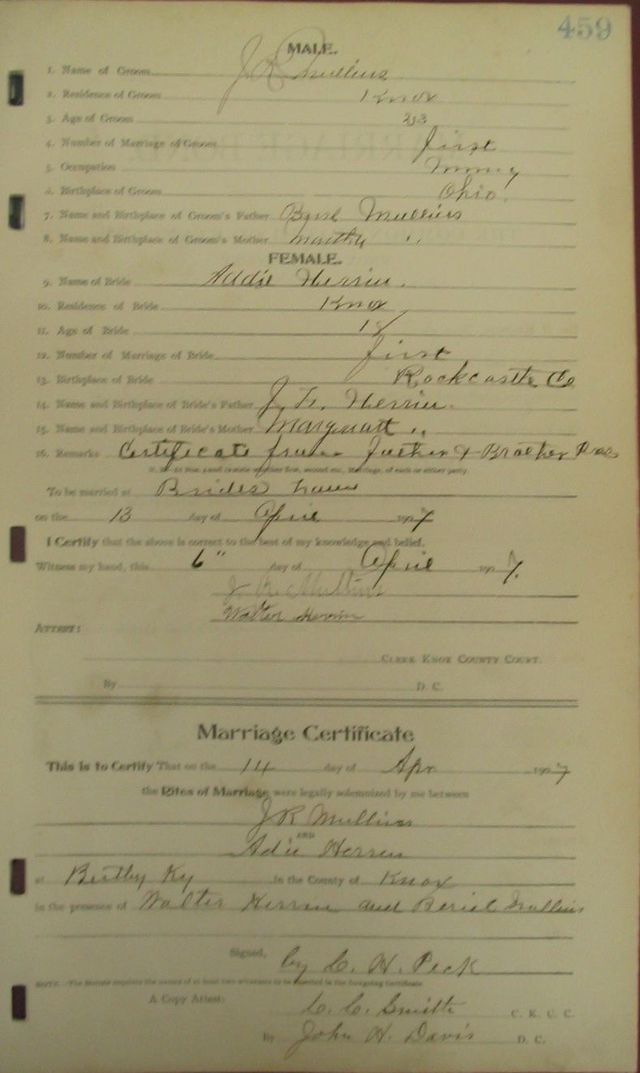 459
MALE.
1. Name of Groom J R Mullins
2. Residence of Groom Knox
3. Age of Groom 23
4. Number of Marriage of Groom first
5. Occupation
6. Birthplace of Groom Ohio.
7. Name and Birthplace of Groom's Father Mullins
8. Name and Birthplace of Groom's Mother Martha "
FEMALE.
9. Name of Bride Addie Herrin.
10. Residence of Bride Knox
11. Age of Bride 18
12. Number of Marriage of Bride first
13. Birthplace of Bride Rockcastle Co
14. Name and Birthplace of Bride's Father J. Herrin.
15. Name and Birthplace of Bride's Mother Margaratt "
16. Remarks Certificate from Father & Brother
To be married at Brides home
on the 13 day of April 1907
I Certify that the above is correct to the best of my knowledge and belief.
Witness my hand, this 6" day of April 1907.
J. R. Mullins
Walter Herrin
ATTEST:
CLERK KNOX COUNTY COURT.
By D. C.
Marriage Certificate
This is to Certify That on the 14 day of Apr 1907
the Rites of Marriage were legally solemnized by me between
J R Mullins
AND
Adie Herren
at Ky in the County of Knox
in the presence of Walter Herrin and Mullins
Signed, by C. H. Peck
NOTE.—The Statute requires the names of at least two witnesses to be inserted in the foregoing Certificate
A Copy Attest: C. C. Smith C. K. C. C.
By John H. Davis D. C.